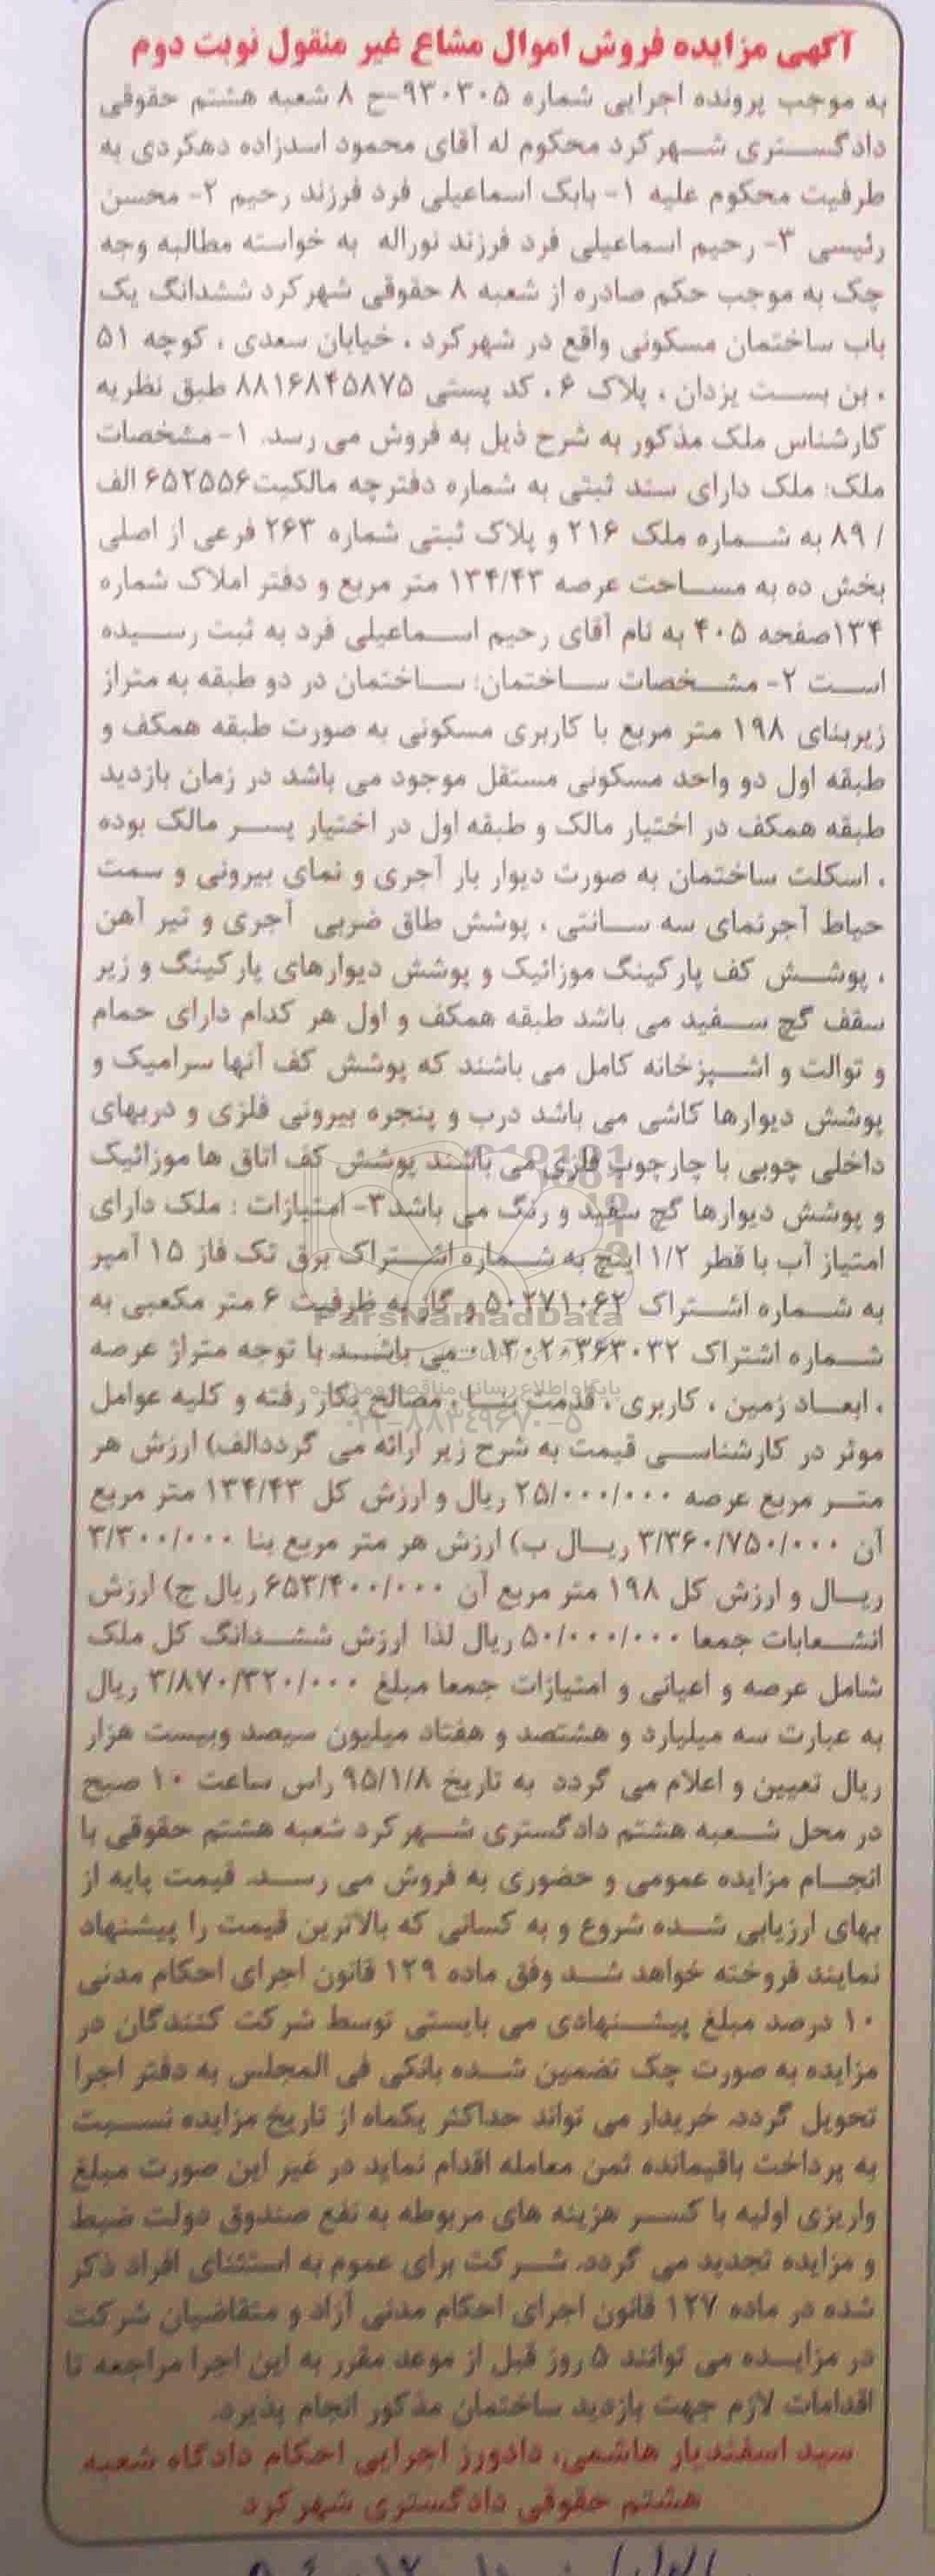 آگهی مزایده فروش اموال مشاع غیر منقول نوبت دوم
به موجب پرونده اجرایی شماره ۹۳۰۳۰۵-ح ۸ شعبه هشتم حقوقی
دادگستری شهرکرد محکوم له آقای محمود اسدزاده دهکردی به
طرفیت محکوم علیه ۱- بابک اسماعیلی فرد فرزند رحیم ۲- محسن
رئیسی ۳- رحیم اسماعیلی فرد فرزند نوراله به خواسته مطالبه وجه
چک به موجب حکم صادره از شعبه ۸ حقوقی شهرکرد ششدانگ یک
باب ساختمان مسکونی واقع در شهرکرد ، خیابان سعدی ، کوچه ۵۱
، بن بست یزدان ، پلاک ۶ ، کد پستی ۸۸۱۶۸۴۵۸۷۵ طبق نظریه
کارشناس ملک مذکور به شرح ذیل به فروش می رسد. ۱- مشخصات
ملک: ملک دارای سند ثبتی به شماره دفترچه مالکیت ۶۵۲۵۵۶ الف
/ ۸۹ به شماره ملک ۲۱۶ و پلاک ثبتی شماره ۲۶۳ فرعی از اصلی
بخش ده به مساحت عرصه ۱۳۴/۴۳ متر مربع و دفتر املاک شماره
۱۳۴صفحه ۴۰۵ به نام آقای رحیم اسماعیلی فرد به ثبت رسیده
است ۲- مشخصات ساختمان: ساختمان در دو طبقه به متراز
زیربنای ۱۹۸ متر مربع با کاربری مسکونی به صورت طبقه همکف و
طبقه اول دو واحد مسکونی مستقل موجود می باشد در زمان بازدید
طبقه همکف در اختیار مالک و طبقه اول در اختیار پسر مالک بوده
، اسکلت ساختمان به صورت دیوار بار آجری و نمای بیرونی و سمت
حیاط آجرنمای سه سانتی ، پوشش طاق ضربی آجری و تیر آهن
، پوشش کف پارکینگ موزائیک و پوشش دیوارهای پارکینگ و زیر
سقف گچ سفید می باشد طبقه همکف و اول هر کدام دارای حمام
و توالت و اشپزخانه کامل می باشند که پوشش کف آنها سرامیک و
پوشش دیوارها کاشی می باشد درب و پنجره بیرونی فلزی و دربهای
داخلی چوبی با چارچوب فلزی می باشند پوشش کف اتاق ها موزائیک
و پوشش دیوارها گچ سفید و رنگ می باشد ۳- امتیازات : ملک دارای
امتیاز آب با قطر ۱/۲ اینچ به شماره اشتراک برق تک فاز ۱۵ آمپر
به شماره اشتراک ۵۰۲۷۱۰۶۲ و گاز به ظرفیت ۶ متر مکعبی به
شماره اشتراک می باشد با توجه متراژ عرصه
، ابعاد زمین ، کاربری ، قدمت بنا ، مصالح بکار رفته و کلیه عوامل
موثر در کارشناسی قیمت به شرح زیر ارائه می گرددالف) ارزش هر
متر مربع عرصه ۲۵/۰۰۰/۰۰۰ ریال و ارزش کل ۱۳۴/۴۳ متر مربع
آن ۳/۳۶۰/۷۵۰/۰۰۰ ریال ب) ارزش هر متر مربع بنا ۳/۳۰۰/۰۰۰
ریال و ارزش کل ۱۹۸ متر مربع آن ۶۵۳/۴۰۰/۰۰۰ ریال ج) ارزش
انشعابات جمعا ۵۰/۰۰۰/۰۰۰ ریال لذا ارزش ششدانگ کل ملک
شامل عرصه و اعیانی و امتیازات جمعا مبلغ ۳/۸۷۰/۳۲۰/۰۰۰ ریال
به عبارت سه میلیارد و هشتصد و هفتاد میلیون سیصد وبیست هزار
ریال تعیین و اعلام می گردد به تاریخ ۹۵/۱/۸ راس ساعت ۱۰ صبح
در محل شعبه هشتم دادگستری شهرکرد شعبه هشتم حقوقی با
انجام مزایده عمومی و حضوری به فروش می رسد. قیمت پایه از
بهای ارزیابی شده شروع و به کسانی که بالاترین قیمت را پیشنهاد
نمایند فروخته خواهد شد وفق ماده ۱۲۹ قانون اجرای احکام مدنی
۱۰ درصد مبلغ پیشنهادی می بایستی توسط شرکت کنندگان در
مزایده به صورت چک تضمین شده بانکی فی المجلس به دفتر اجرا
تحویل گردد. خریدار می تواند حداکثر یکماه از تاریخ مزایده نسبت
به پرداخت باقیمانده ثمن معامله اقدام نماید در غیر این صورت مبلغ
واریزی اولیه با کسر هزینه های مربوطه به نفع صندوق دولت ضبط
و مزایده تجدید می گردد. شرکت برای عموم به استثنای افراد ذکر
شده در ماده ۱۲۷ قانون اجرای احکام مدنی آزاد و متقاضیان شرکت
در مزایده می توانند ۵ روز قبل از موعد مقرر به این اجرا مراجعه تا
اقدامات لازم جهت بازدید ساختمان مذکور انجام پذیرد.
سید اسفندیار هاشمی، دادورز اجرایی احکام دادگاه شعبه
هشتم حقوقی دادگستری شهرکرد
ParsNamadData
پایگاه اطلاع رسانی مناقصه و مزایده
۰۲۱-۸۸۳۴۹۶۷۰-۵